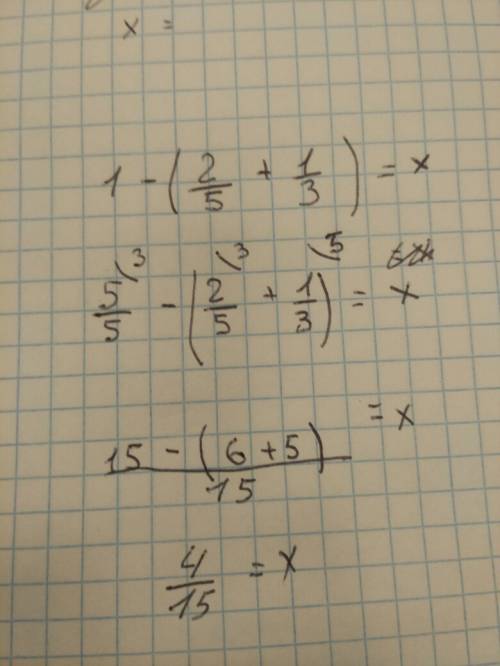 x =
1 - (2/5 + 1/3) = x
3 3 5
5/5 - (2/5 + 1/3) = x
(15 - (6 + 5))/15 = x
4/15 = x